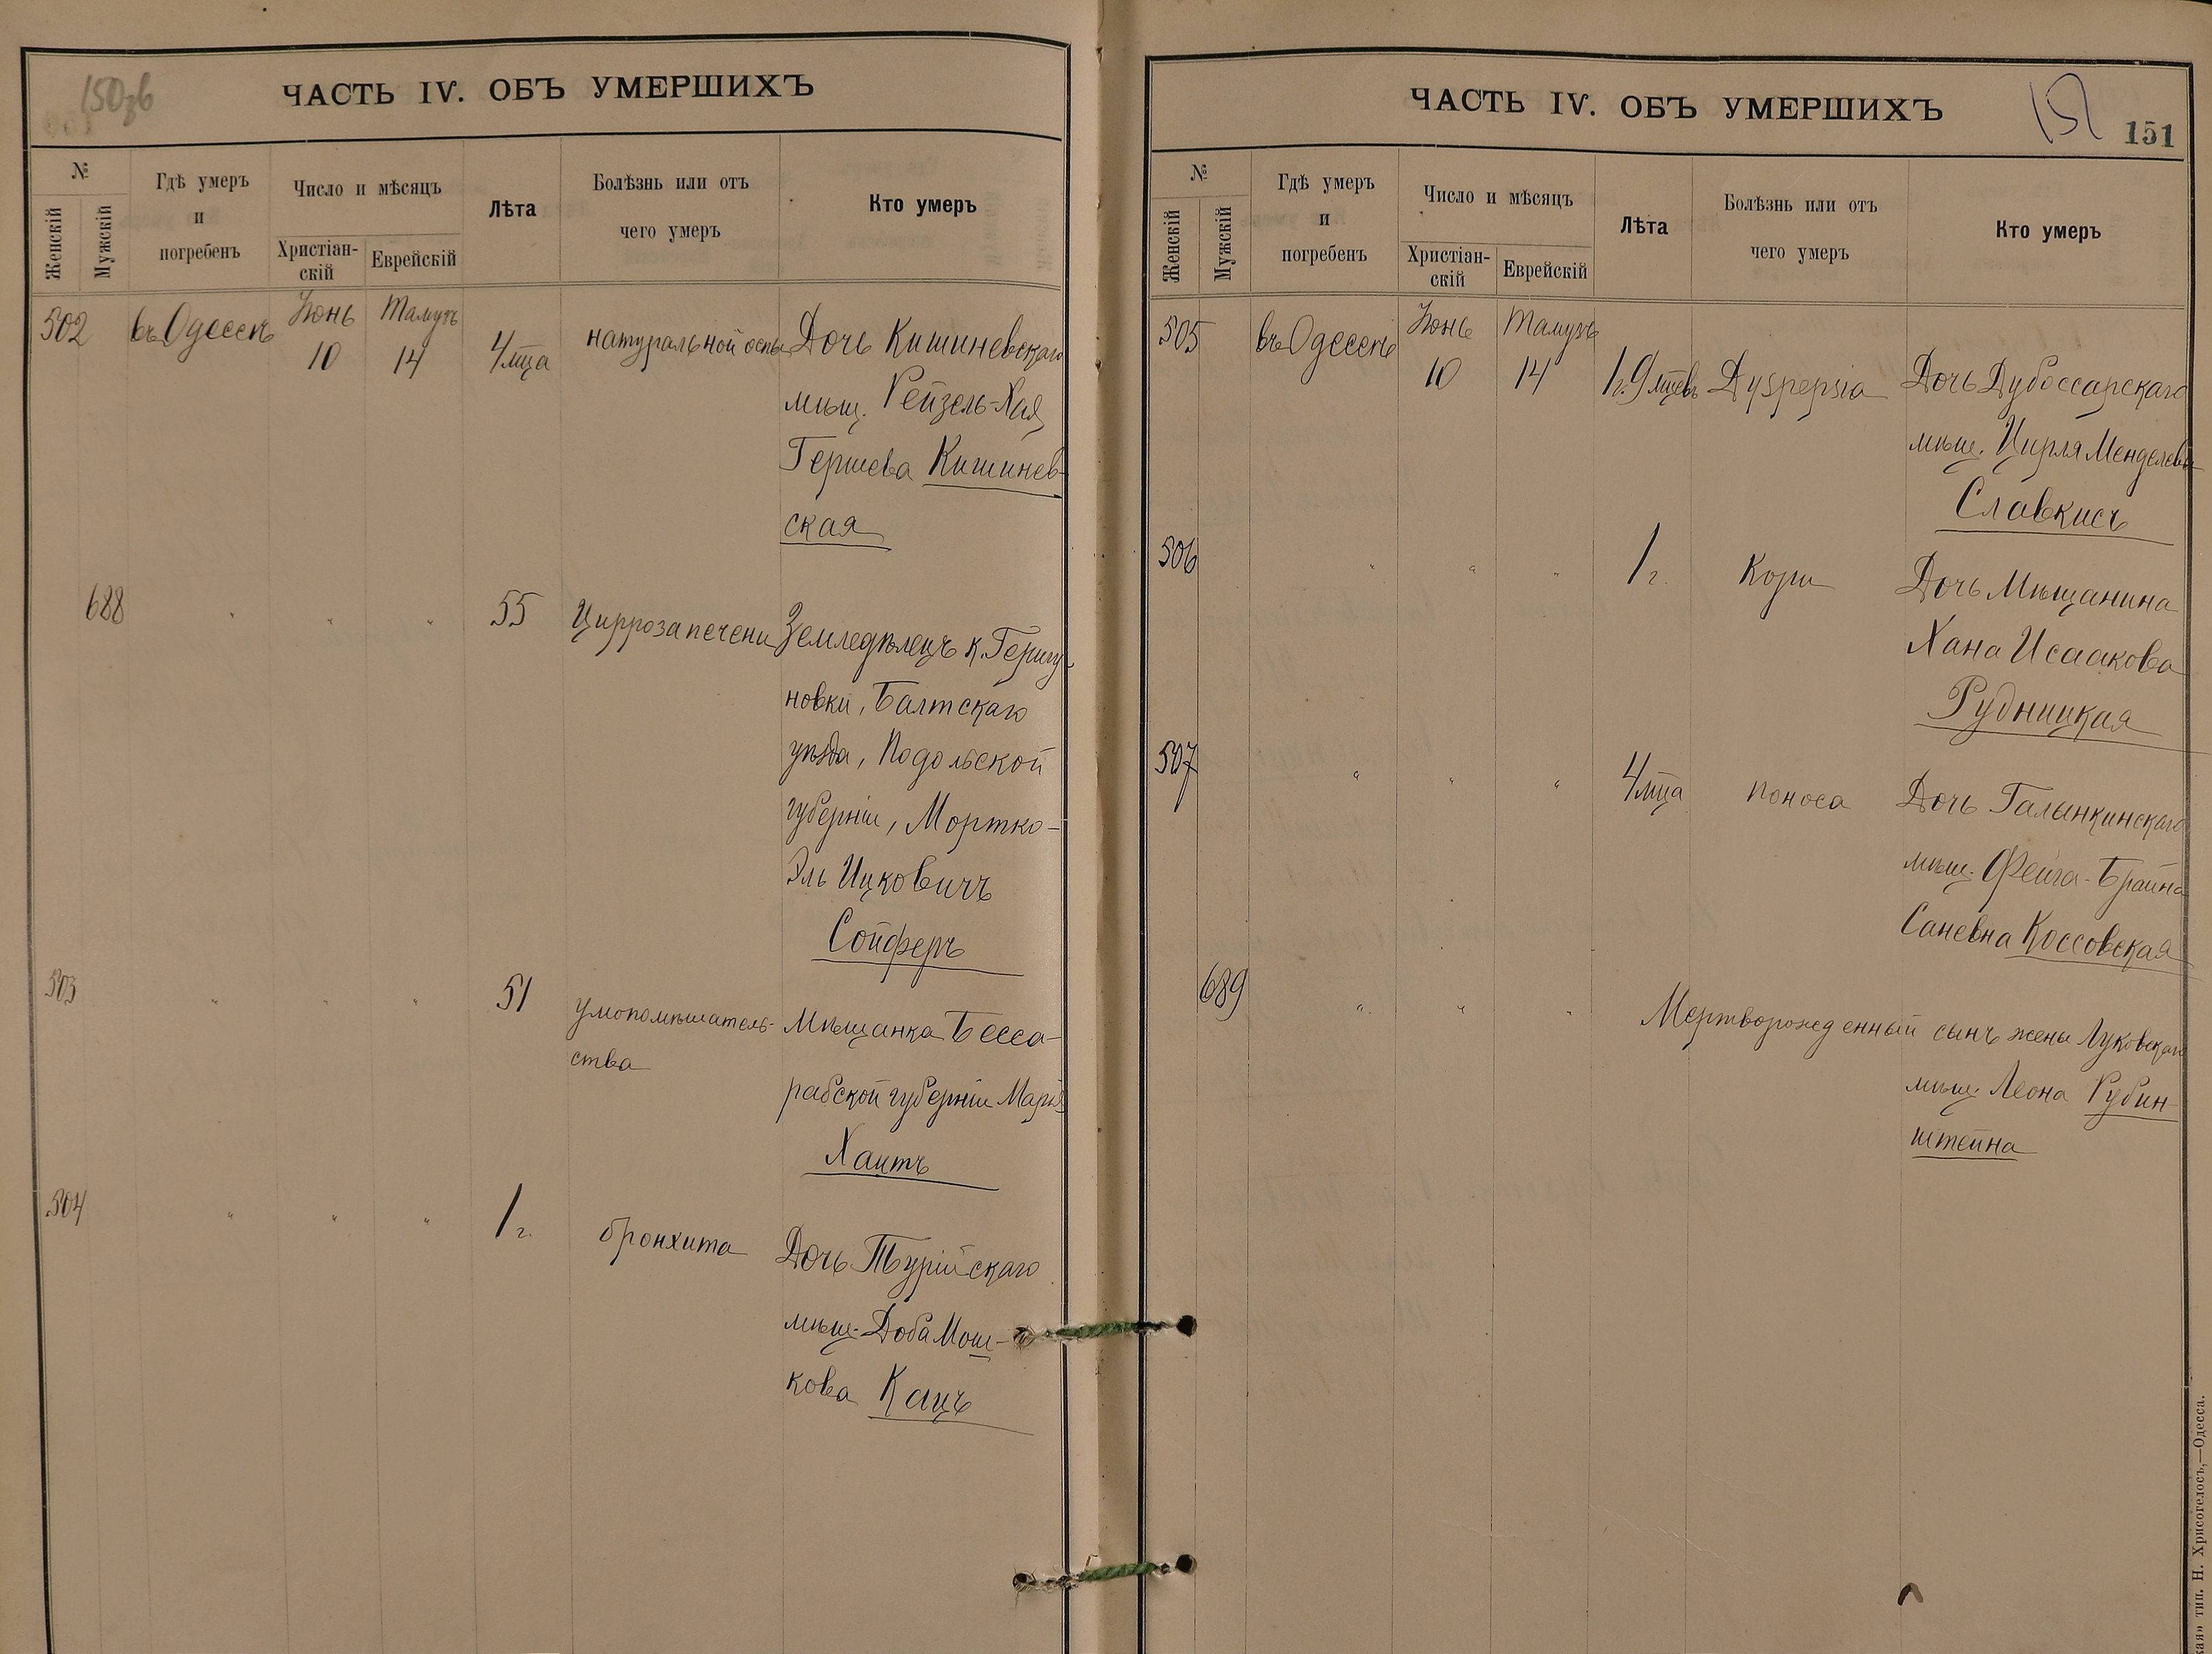 150об
ЧАСТЬ IV. ОБЪ УМЕРШИХЪ
№
Женскій
Мужскій
Гдѣ умеръ
и
погребенъ
Число и мѣсяцъ
Христіан-
скій
Еврейскій
Лѣта
Болѣзнь или отъ
чего умеръ
Кто умеръ
502
въ Одессѣ
Іюнь
10
Тамузъ
14
4 мца
натуральной оспы
Дочь Кишиневскаго
мѣщ. Рейзель-Хая
Гершева Кишинев-
ская
688
"
"
"
55
Цирроза печени
Земледѣлецъ к. Гершу-
новки, Балтскаго
уѣзда, Подольской
губерніи, Мортко-
Эль Ицковичъ
Сойферъ
503
"
"
"
51
умопомѣшатель-
ства
Мѣщанка Бесса-
рабской губерніи Марія
Хаитъ
504
"
"
"
1 г.
бронхита
Дочь Турійскаго
мѣщ. Доба Мош-
кова Кацъ
ЧАСТЬ IV. ОБЪ УМЕРШИХЪ
151
151
№
Женскій
Мужскій
Гдѣ умеръ
и
погребенъ
Число и мѣсяцъ
Христіан-
скій
Еврейскій
Лѣта
Болѣзнь или отъ
чего умеръ
Кто умеръ
505
въ Одессѣ
Іюнь
10
Тамузъ
14
1 г. 9 мцевъ
Dyspepsia
Дочь Дубоссарскаго
мѣщ. Цирля Менделева
Славкисъ
506
"
"
"
1 г.
Кори
Дочь Мѣщанина
Хана Исаакова
Рудницкая
507
"
"
"
4 мца
поноса
Дочь Галынкинскаго
мѣщ. Фейга-Брайна
Саневна Коссовская
689
"
"
"
Мертворожденный сынъ жены Луковскаго
мѣщ. Леона Рубин-
штейна
кая» тип. Н. Хрисогелосъ,—Одесса.